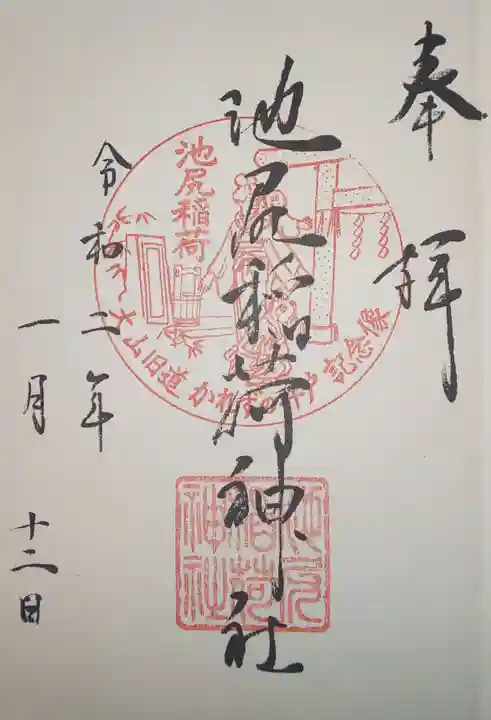 奉拝
池尻稲荷神社
令和二年
一月十二日
池尻稲荷
大山旧道
記念
池尻
稲荷
神社